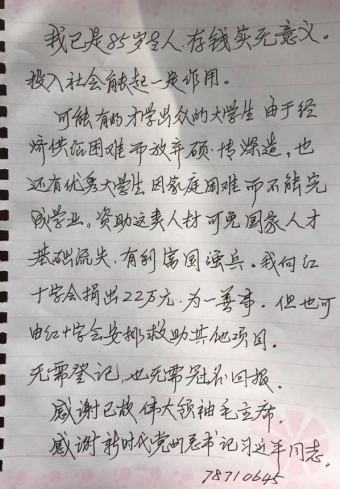 我已是85岁老人，存钱实无意义。
投入社会能起一定作用。
可能有的才学出众的大学生由于经
济供给困难而放弃硕、博深造，也
还有优秀大学生因家庭困难而不能完
成学业。资助这类人材可免国家人才
基础流失，有利富国强兵。我向红
十字会捐出22万元，为一善事。但也可
由红十字会安排救助其他项目。
无需登记，也无需冠名回报。
感谢已故伟大领袖毛主席。
感谢新时代党的总书记习近平同志。
78710645